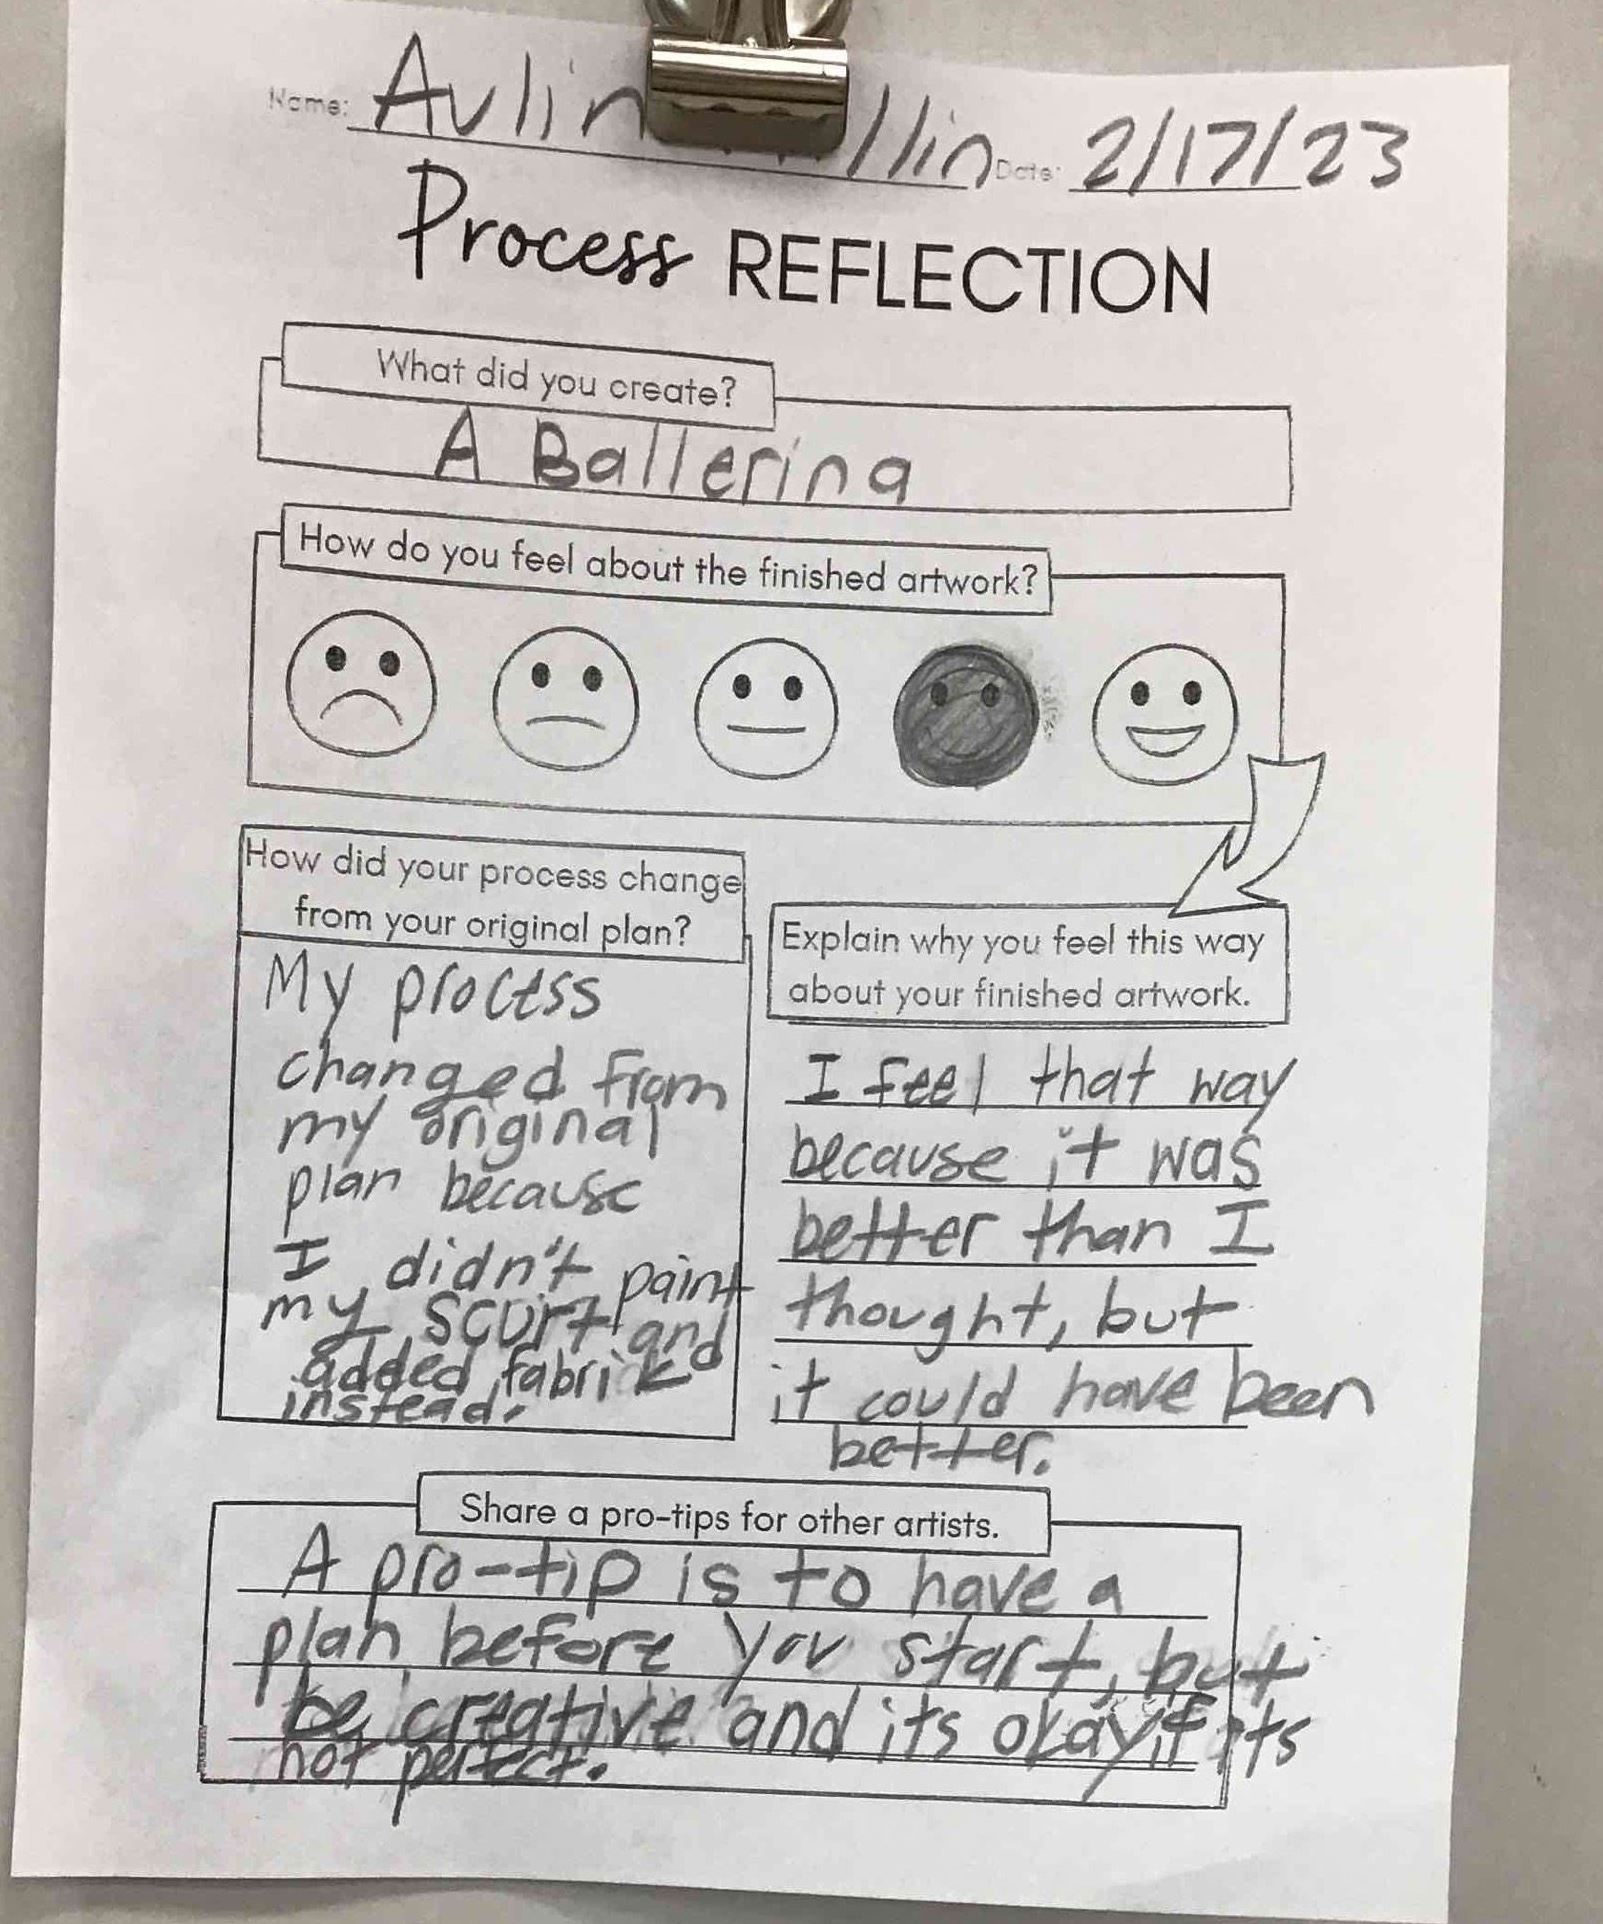 Name: Avlin Date: 2/17/23
Process REFLECTION
What did you create?
A Ballerina
How do you feel about the finished artwork?
How did your process change
from your original plan?
My process
changed from
my original
plan because
I didn't paint
my scurt and
added fabrick
instead.
Explain why you feel this way
about your finished artwork.
I feel that way
because it was
better than I
thought, but
it could have been
better.
Share a pro-tips for other artists.
A pro-tip is to have a
plan before you start, but
be creative and its okay if its
not perfect.